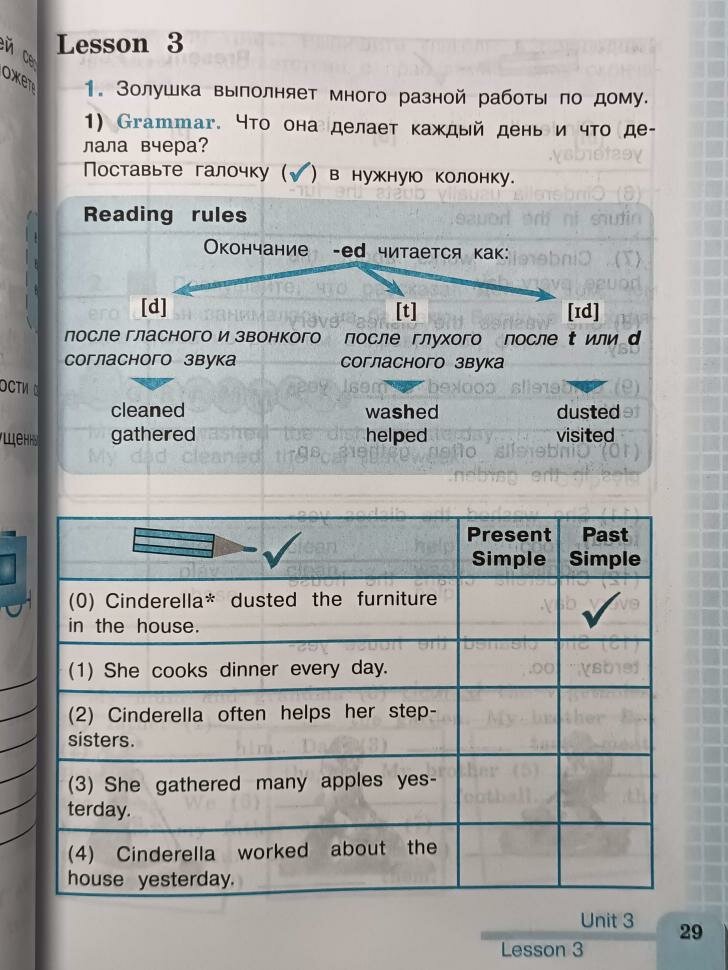 Lesson 3
1. Золушка выполняет много разной работы по дому.
1) Grammar. Что она делает каждый день и что де-
лала вчера?
Поставьте галочку (✓) в нужную колонку.
Reading rules
Окончание -ed читается как:
[d] [t] [ɪd]
после гласного и звонкого согласного звука
после глухого согласного звука
после t или d
cleaned washed dusted
gathered helped visited
Present Simple
Past Simple
(0) Cinderella* dusted the furniture
in the house. ✓
(1) She cooks dinner every day.
(2) Cinderella often helps her step-
sisters.
(3) She gathered many apples yes-
terday.
(4) Cinderella worked about the
house yesterday.
Unit 3
Lesson 3
29